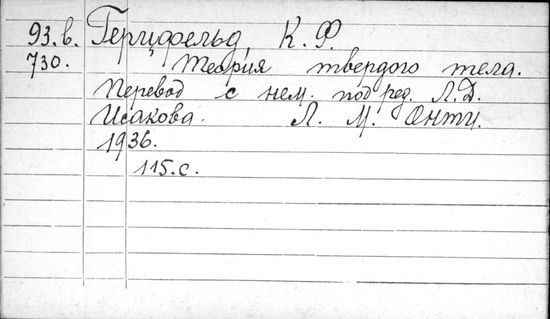 93.в. Герцфельд, К. Ф.
730. Теория твердого тела.
Перевод с нем. под ред. Л.Д.
Исакова. Л. М. Онти.
1936.
115.с.